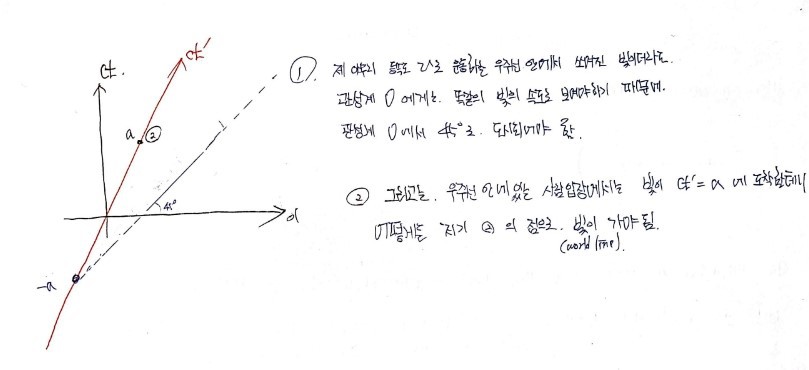 ct.
ct'
a ②
45°
x
-a
① 제 아무리 등속도 v로 운동하는 우주선 안에서 쏘여진 빛이더라도.
관성계 O에게는. 똑같이 빛의 속도로 보여야하기 때문에.
관성계 O에서 45°로. 도시되어야 함.
② 그리고는. 우주선 안에 있는 사람입장에서는 빛이 ct'=a 에 도착할테니
어떻게든 저기 ②의 점으로. 빛이 가야 됨.
(world line).